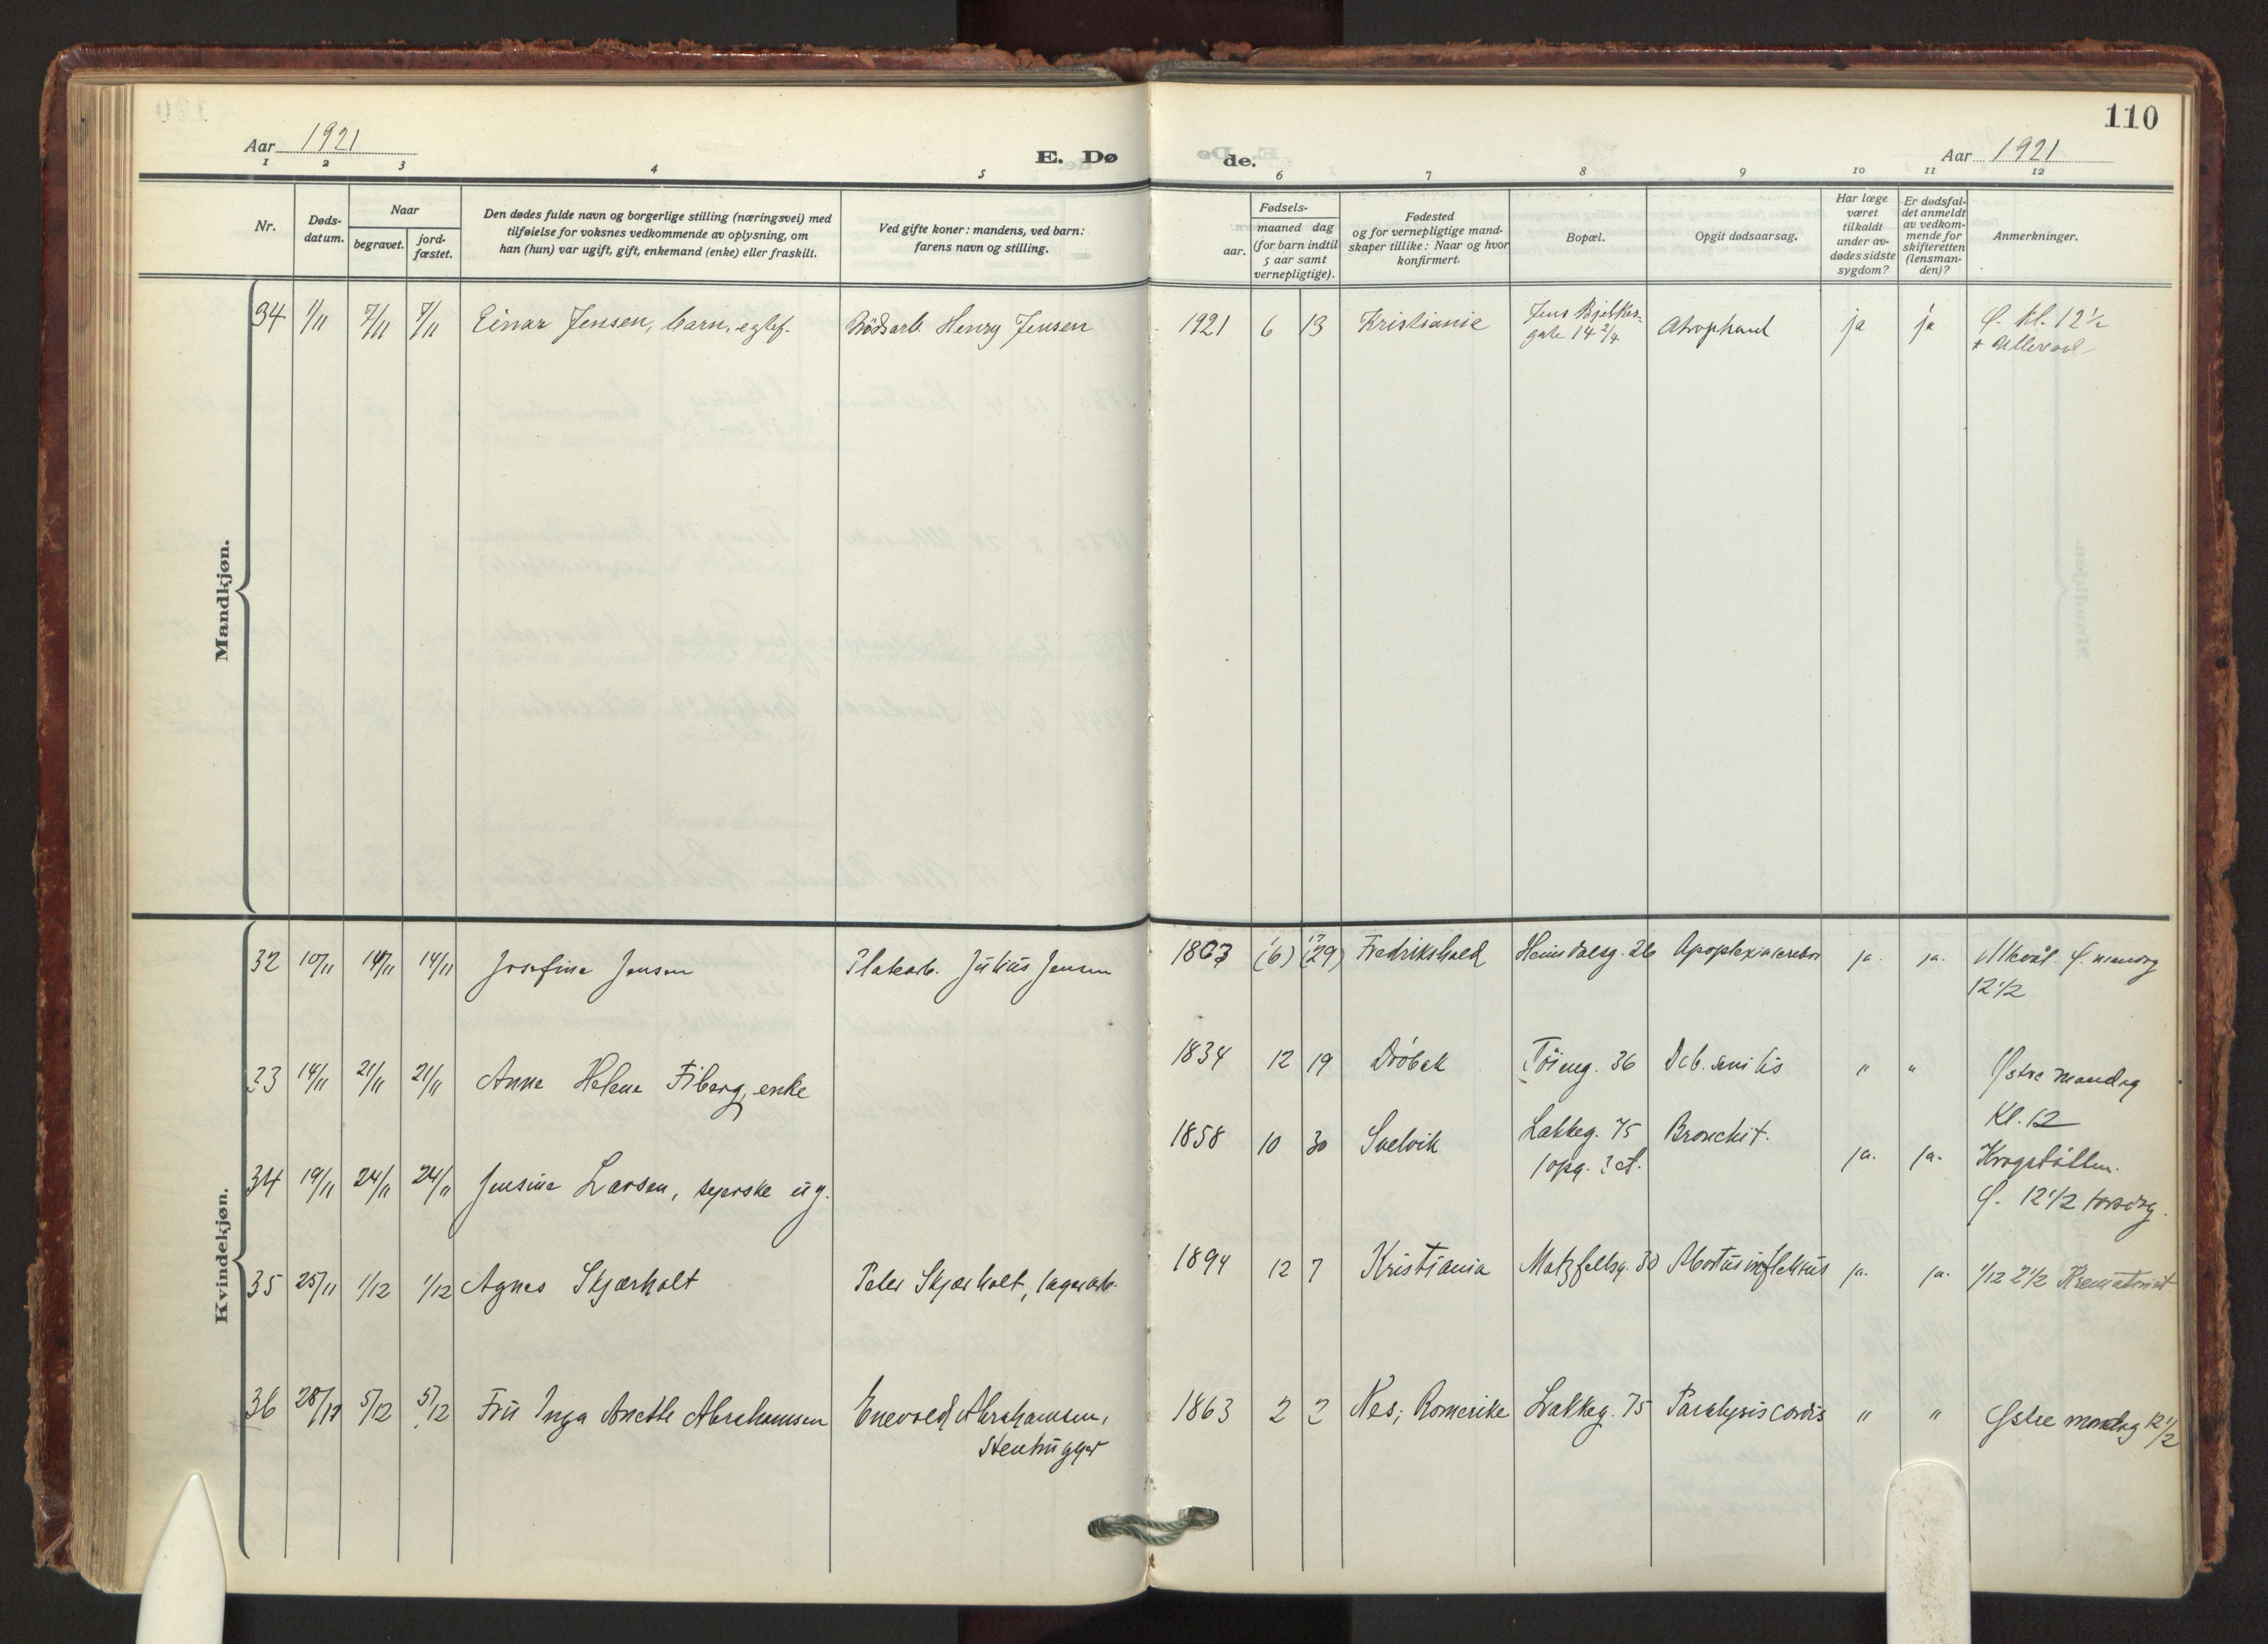 110
Aar 1921
E. Dø
de.
Aar 1921
1 2 3 4 5 6 7 8 9 10 11 12
Nr.
Døds-
datum.
Naar
begravet.
jord-
fæstet.
Den dødes fulde navn og borgerlige stilling (næringsvei) med
tilføielse for voksnes vedkommende av oplysning, om
han (hun) var ugift, gift, enkemand (enke) eller fraskilt.
Ved gifte koner: mandens, ved barn:
farens navn og stilling.
Fødsels-
aar.
maaned dag
(for barn indtil
5 aar samt
vernepligtige).
Fødested
og for vernepligtige mand-
skaper tillike: Naar og hvor
konfirmert.
Bopæl.
Opgit dødsaarsag.
Har læge
været
tilkaldt
under av-
dødes sidste
sygdom?
Er dødsfal-
det anmeldt
av vedkom-
mende for
skifteretten
(lensman-
den)?
Anmerkninger.
Mandkjøn.
34 1/11 7/11 7/11 Einar Jensen, barn, egtef. Henry Jensen 1921 6 13 Kristiania Jens Bjelkes- ja ja kl. 12 1/2
gate 14 2/4
+ Ullevaal
Kvindekjøn.
32 10/11 14/11 14/11 Josefine Jensen Julius Jensen 1863 (6) (29) Fredrikshald Heimdalsg. 26 Apoplexia cerebri ja. ja. mandag
12 1/2
33 14/11 21/11 21/11 Anna Helene Fiberg, enke 1834 12 19 Dröbak Töieng. 36 Deb. senilis " " Østre mandag
Kl. 12
34 19/11 24/11 24/11 Jensine Larsen, syerske ug. 1858 10 30 Svelvik Lakkeg. 75 Bronchit. ja. ja. Krogstötten.
1 opg. 3 et.
12 1/2 torsdag.
35 25/11 1/12 1/12 Agnes Skjærholt Peder Skjærholt, lagerarb. 1894 12 7 Kristiania 30 Abortus ja. ja. 1/12 2 1/2 Krematoriet
36 28/11 5/12 5/12 Fru Inga Anette Abrahamsen Enevold Abrahamsen, 1863 2 2 Nes, Romerike Lakkeg. 75 Paralysis cordis " " Østre mandag 12 1/2
Stenhugger